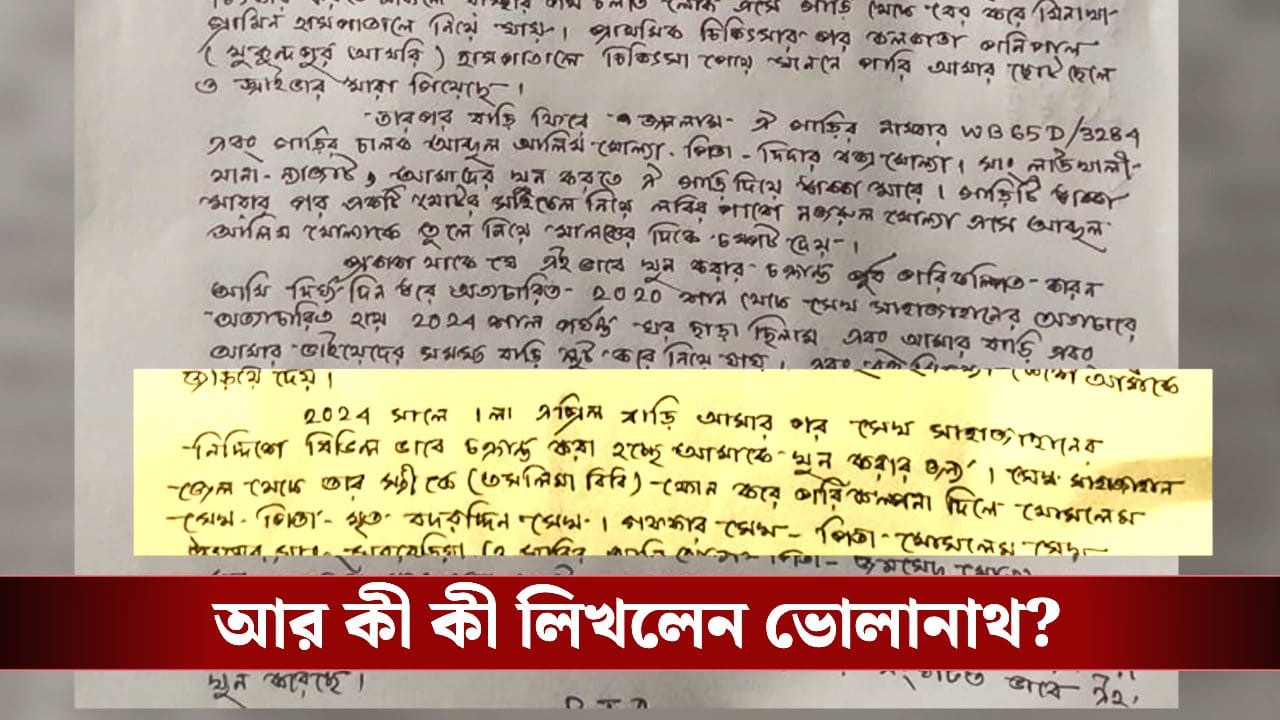 আমিন হাসপাতালে নিয়ে যায়। প্রাথমিক চিকিৎসার পর কলকাতা মনিপাল
( মুকুন্দপুর আমরি ) হাসপাতালে চিকিৎসা পেয়ে জানতে পারি আমার ছোট ছেলে
ও ড্রাইভার মারা গিয়েছে।
তারপর বাড়ি ফিরে জানলাম ঐ গাড়ির নাম্বার WB65D/3284
এবং গাড়ির চালক আব্দুল আলিম মোল্যা - পিতা - দিদার বক্স মোল্যা। সাং লাউখালী-
থানা - ন্যাজাট, আমাদের খুন করতে ঐ গাড়ি দিয়ে ধাক্কা মারে। গাড়িটি ধাক্কা
মারার পর একটি মোটর সাইকেল নিয়ে লরির পাশে নজরুল মোল্যা এসে আব্দুল
আলিম মোল্যাকে তুলে নিয়ে মালঞ্চের দিকে চম্পট দেয়।
প্রকাশ থাকে যে এই ভাবে খুন করার চক্রান্ত পূর্ব পরিকল্পিত - কারন
আমি দীর্ঘ দিন ধরে অত্যাচারিত - 2020 সাল থেকে সেখ সাহাজাহানের অত্যাচারে
অত্যাচারিত হয়ে 2024 সাল পর্যন্ত ঘর ছাড়া ছিলাম এবং আমার বাড়ি এবং
আমার ভাইয়েদের সমস্ত বাড়ি লুট করে নিয়ে যায়। এবং
আমাকে
তাড়িয়ে দেয়।
2024 সালে ১লা এপ্রিল বাড়ি আসার পর সেখ সাহাজাহানের
নির্দ্দেশে বিভিন্ন ভাবে চক্রান্ত করা হচ্ছে আমাকে খুন করার জন্য। সেখ সাহাজাহান
জেল থেকে তার স্ত্রী কে (তসলিমা বিবি) ফোন করে পরিকল্পনা দিলে মোসলেম
সেখ - পিতা - মৃত বদরুদ্দিন সেখ। গফফার সেখ - পিতা - মোসলেম সেখ
আর কী কী লিখলেন ভোলানাথ?
খুন করেছে।
ভাবে ঐ
P T O